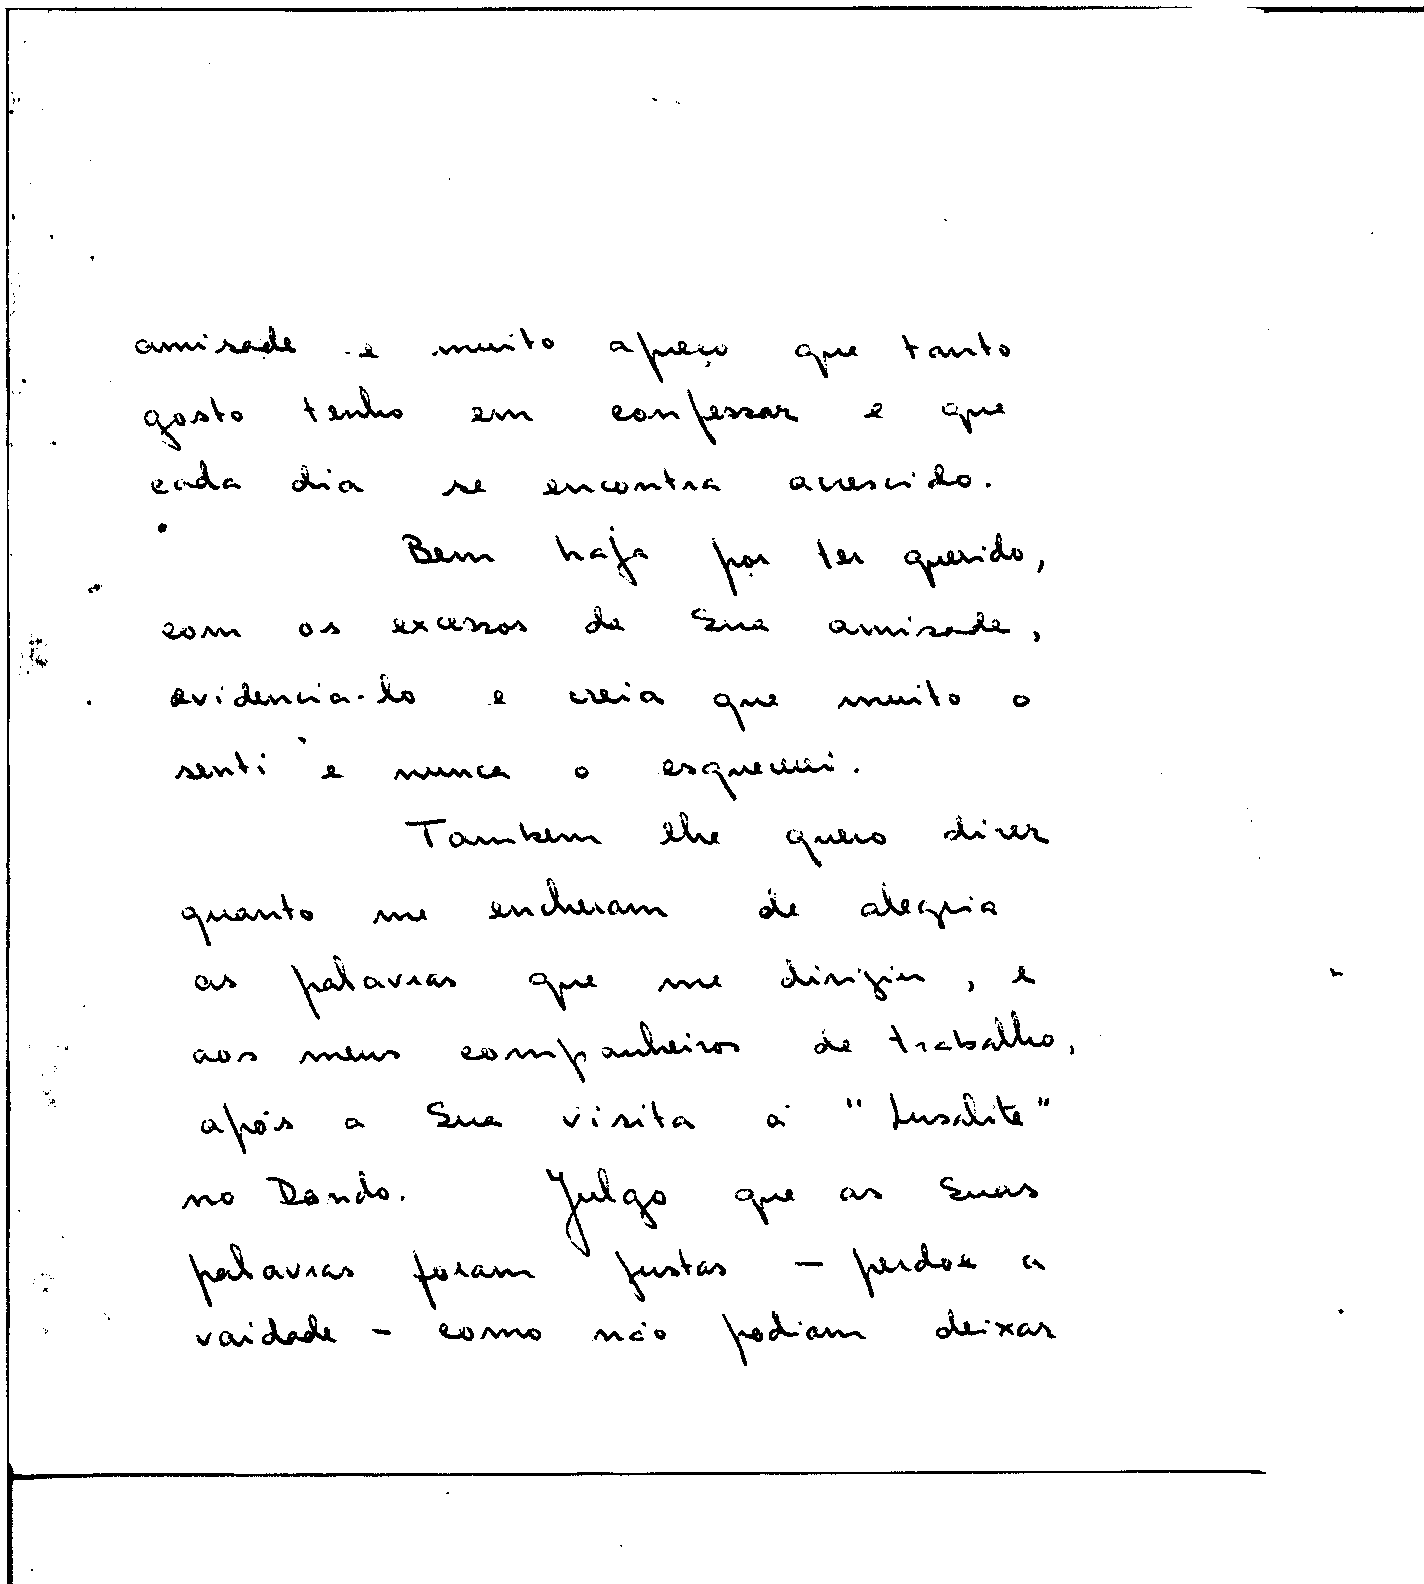 amisade e muito apreço que tanto
gosto tenho em confessar e que
cada dia se encontra acrescido.
Bem haja por ter querido,
com os excessos da Sua amisade,
evidencia-lo e creia que muito o
senti e nunca o esquecerei.
Tambem lhe quero dizer
quanto me encheram de alegria
as palavras que me dirigiu, e
aos meus companheiros de trabalho,
após a Sua visita á "Lusalite"
no Dondo. Julgo que as Suas
palavras foram justas – perdoe a
vaidade – como não podiam deixar